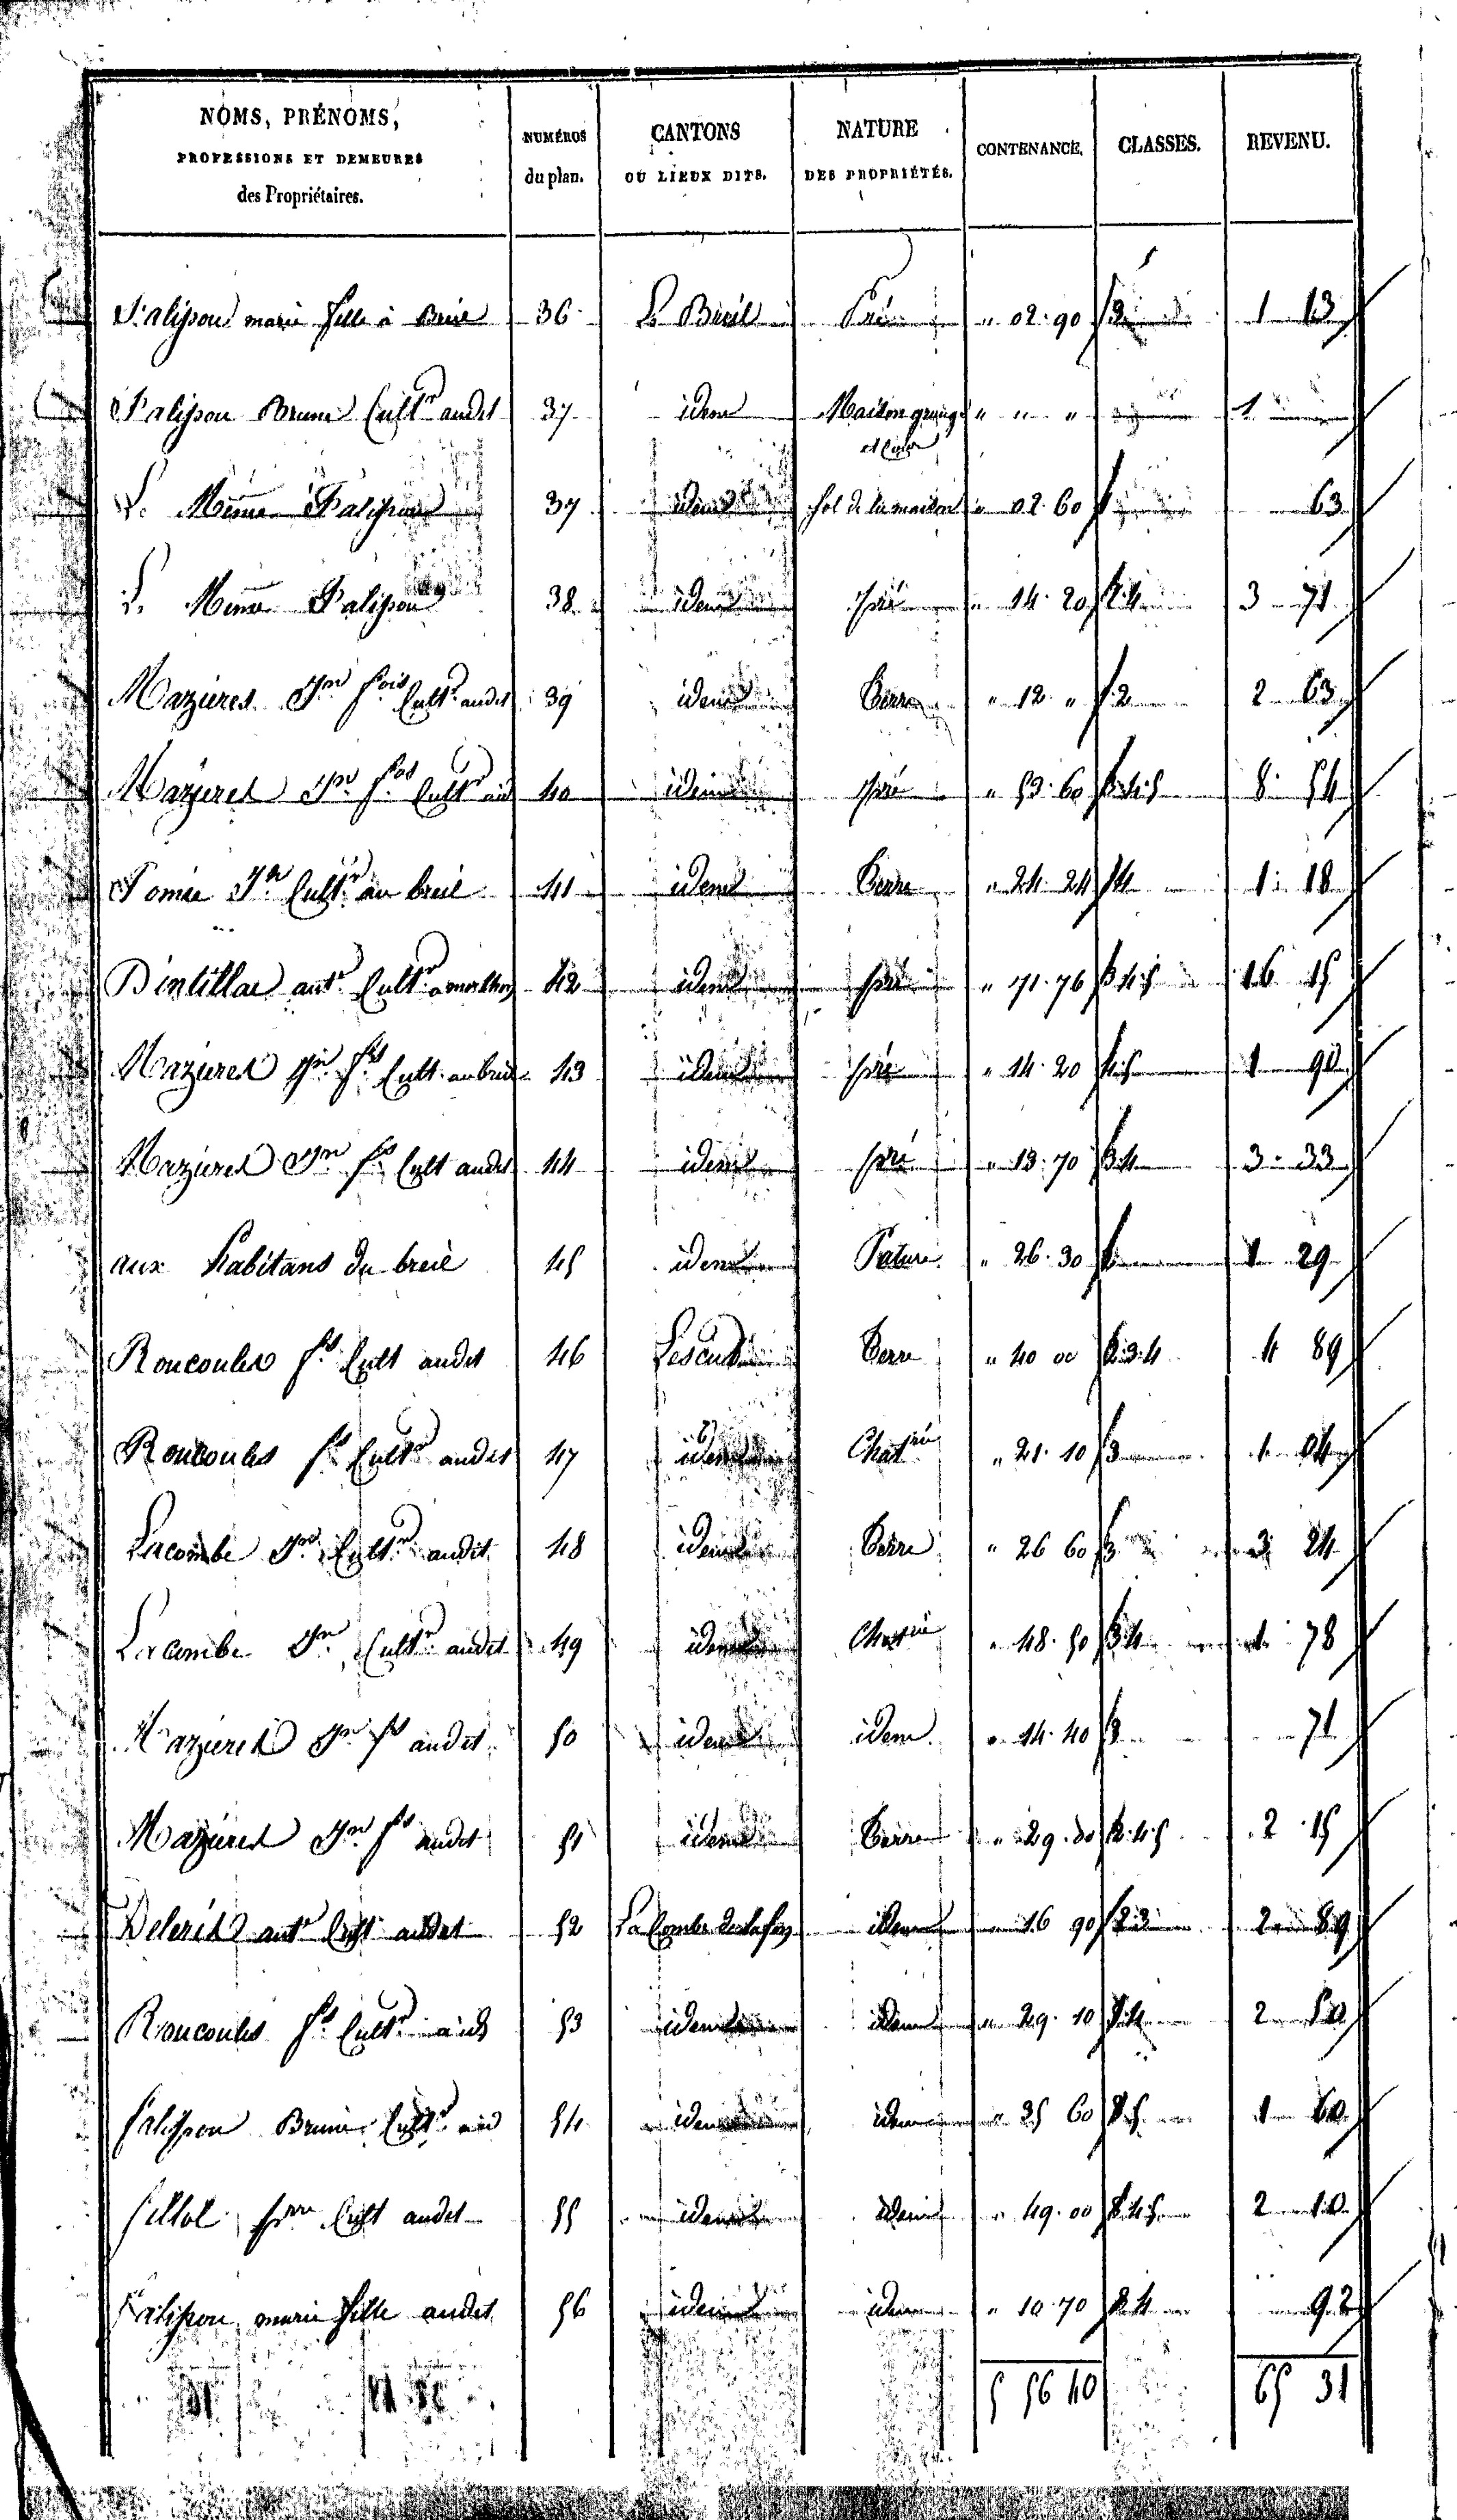 NOMS, PRÉNOMS,
PROFESSIONS ET DEMEURES
des Propriétaires.
NUMÉROS
du plan.
CANTONS
OU LIEUX DITS.
NATURE
DES PROPRIÉTÉS.
CONTENANCE.
CLASSES.
REVENU.
Falissou marie fille à Breil 36 Le Breil Pré " 02.90 2 1 13
Falissou Brune Cultr audit 37 idem Maison grange " " " 1
et Cour
Le Même Falissou 37 idem Sol de la maison " 02.60 63
Le Même Falissou 38 idem pré " 14.20 3 71
Mazieres Jn fois Cultr audit 39 idem Terre " 12 " 2 2 63
Mazieres Jn fs Cultr aud 40 idem pré " 53.60 3.4.5 8 54
Jn Cultr au breil 41 idem Terre " 24.24 4 1 18
Dintillac ant Cultr 42 idem pré " 71.76 3.4.5 16 15
Mazieres Jn fs Cult. au breil 43 idem pré " 14.20 4.5 1 90
Mazieres Jn fs Cult audit 44 idem pré " 13.70 3.4 3 33
aux habitans du breil 45 idem Pature " 26.30 1 29
Roucoules fs Cult audit 46 Terre " 40 00 2.3.4 4 89
Roucoules fs Cultr audit 47 idem " 21.10 3 1 04
Lacombe Jn Cultr audit 48 idem Terre " 26 60 3 24
Lacombe Jn Cultr audit 49 idem " 48.50 3.4 1 78
Mazieres Jn fs audit 50 idem idem " 14.40 3 71
Mazieres Jn fs audit 51 idem Terre " 29.80 2.4.5 2 15
Deleris ant Cult audit 52 idem " 16 90 2.3 2 89
Roucoules fs Cultr aud 53 idem idem " 29.10 2 50
Falissou Brune Cultr aud 54 idem idem " 35 60 1 60
Cult audit 55 idem idem " 49.00 2 10
Falissou marie fille audit 56 idem idem " 10.70 2.4 92
5 56 40 65 31